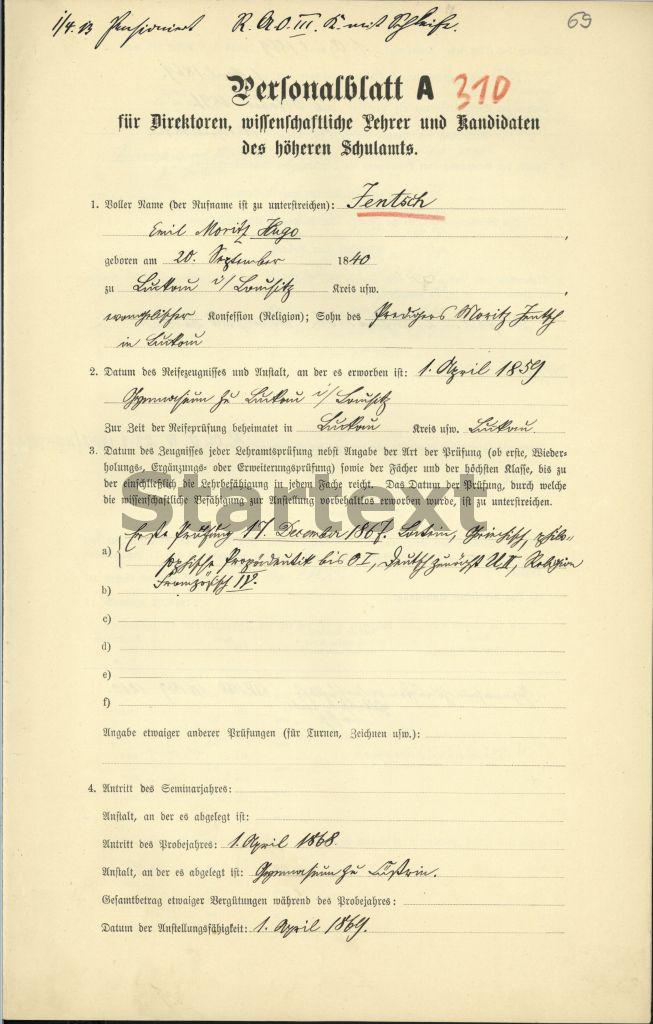 1/4. 13 Pensioniert R. A. O. III. K. mit Schleife. 69
Personalblatt A 310
für Direktoren, wissenschaftliche Lehrer und Kandidaten
des höheren Schulamts.
1. Voller Name (der Rufname ist zu unterstreichen): Jentsch
Emil Moritz Hugo,
geboren am 20. September 1840
zu Luckau i/Lausitz Kreis usw.,
evangelischer Konfession (Religion); Sohn des Predigers Moritz Jentsch
in Luckau
2. Datum des Reifezeugnisses und Anstalt, an der es erworben ist: 1. April 1859
Gymnasium zu Luckau i/Lausitz
Zur Zeit der Reifeprüfung beheimatet in Luckau Kreis usw. Luckau.
3. Datum des Zeugnisses jeder Lehramtsprüfung nebst Angabe der Art der Prüfung (ob erste, Wieder-
holungs-, Ergänzungs- oder Erweiterungsprüfung) sowie der Fächer und der höchsten Klasse, bis zu
der einschließlich die Lehrbefähigung in jedem Fache reicht. Das Datum der Prüfung, durch welche
die wissenschaftliche Befähigung zur Anstellung vorbehaltlos erworben wurde, ist zu unterstreichen.
Startext
Erste Prüfung 17. December 1867. Latein, Griechisch, philo-
a) sophische Propädeutik bis O I, Deutsch zunächst U II, Religion
Französisch IV.
b)
c)
d)
e)
f)
Angabe etwaiger anderer Prüfungen (für Turnen, Zeichnen usw.):
4. Antritt des Seminarjahres:
Anstalt, an der es abgelegt ist:
Antritt des Probejahres: 1. April 1868.
Anstalt, an der es abgelegt ist: Gymnasium zu Cüstrin.
Gesamtbetrag etwaiger Vergütungen während des Probejahres:
Datum der Anstellungsfähigkeit: 1. April 1869.